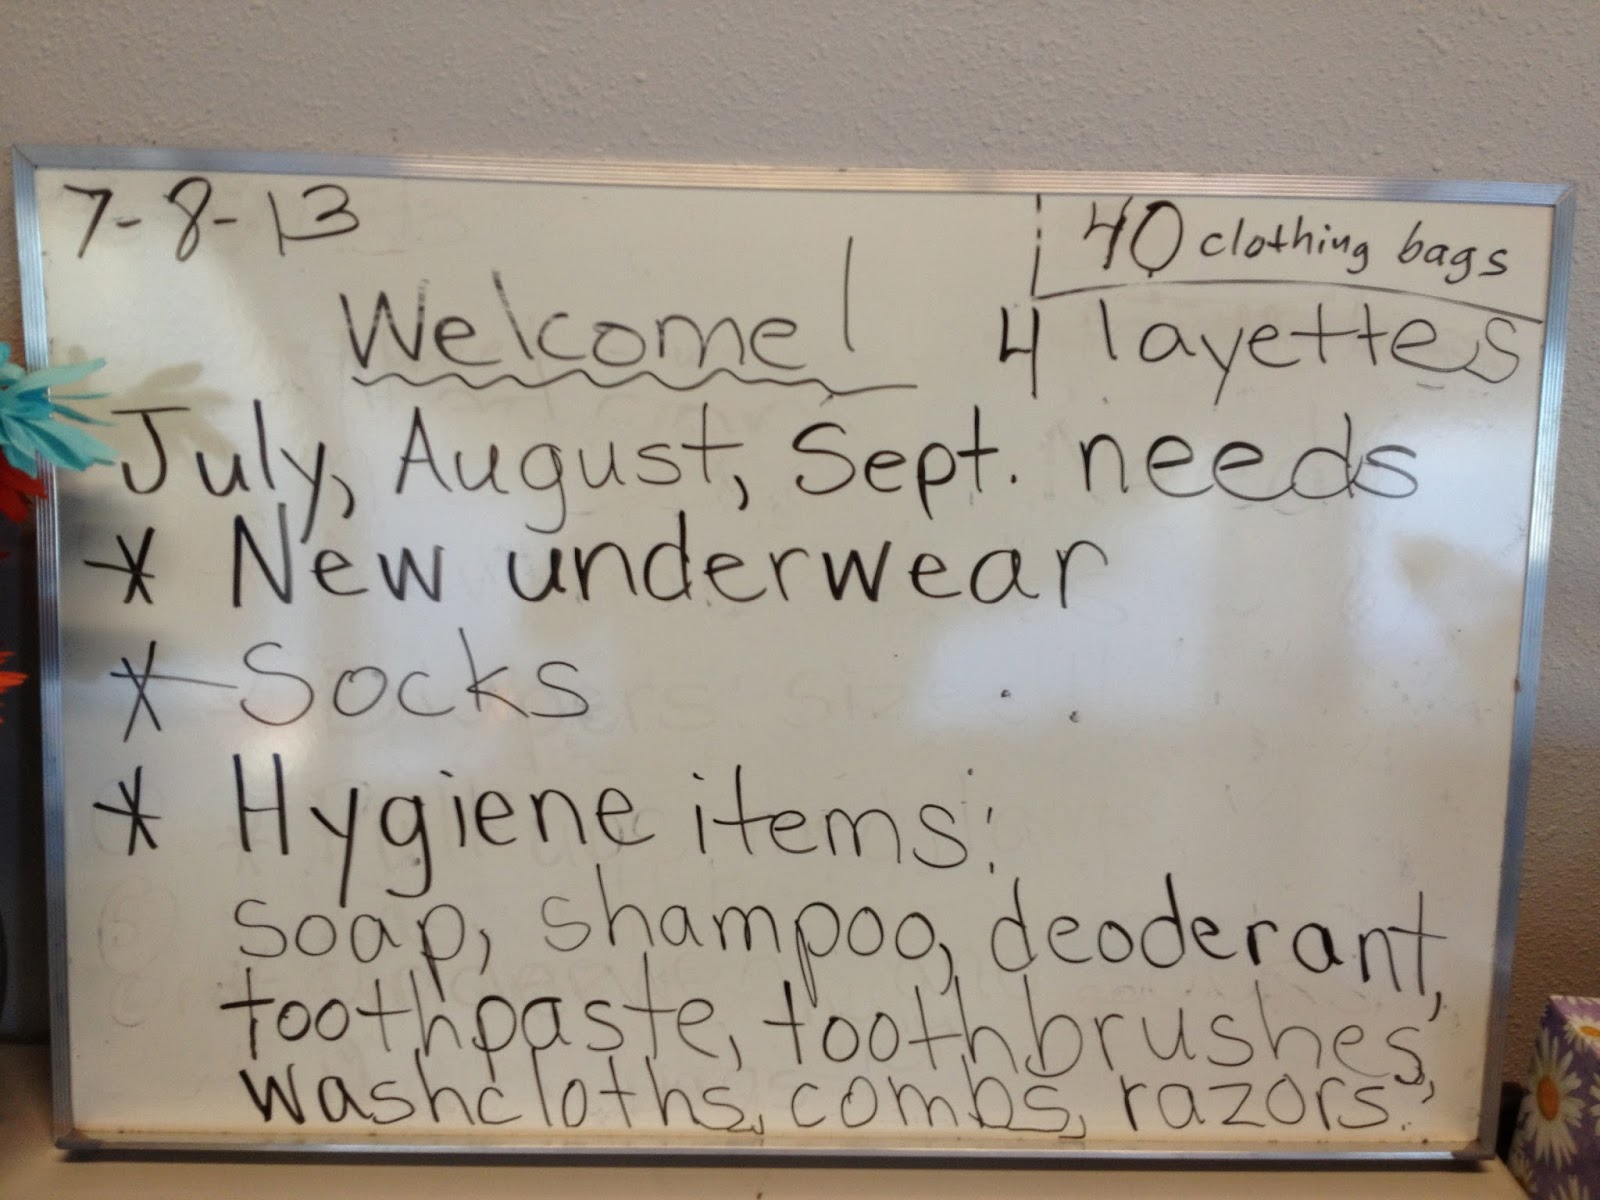 7-8-13
40 clothing bags
Welcome!
4 layettes
July, August, Sept. needs
* New underwear
* Socks
* Hygiene items:
soap, shampoo, deoderant,
toothpaste, toothbrushes,
washcloths, combs, razors.